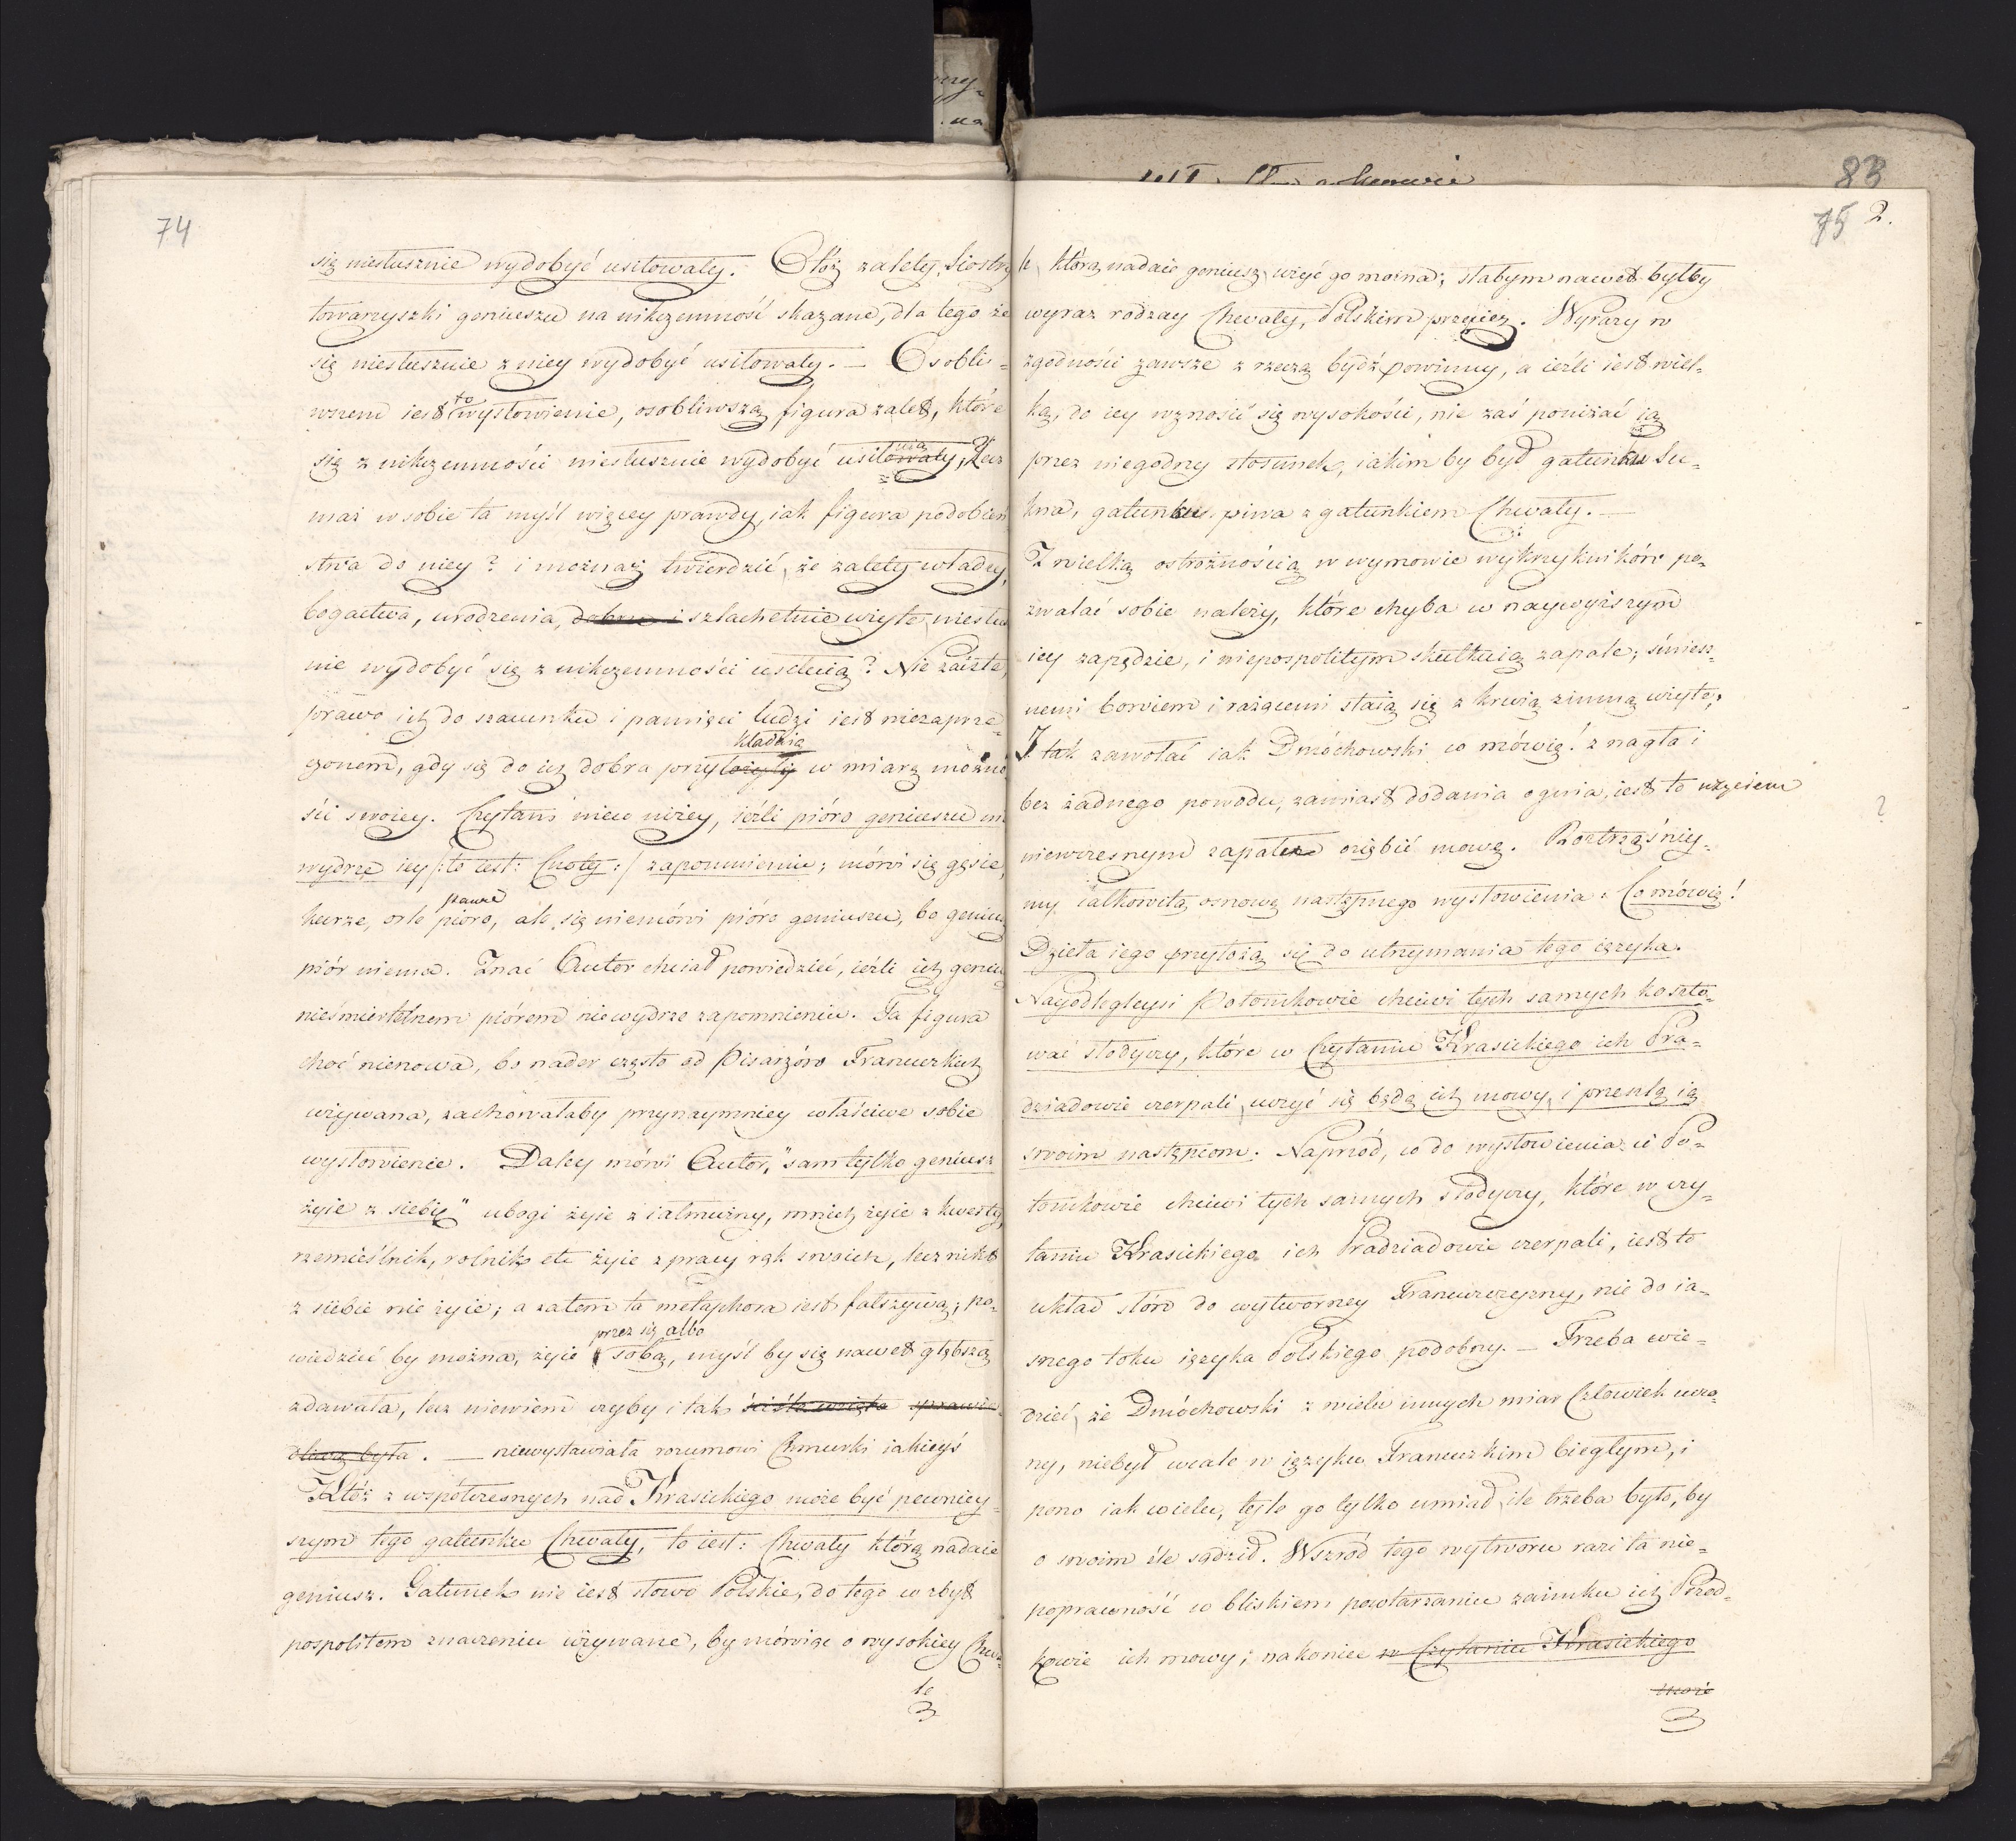 74
się niesłusznie wydobyć usiłowały. Otóż zalety, Siostry
towarzyszki geniuszu na nikczemność skazane, dla tego że
się niesłusznie z niey wydobyć usiłowały. — Osobli-
wszem iest to wysłowienie, osobliwszą figura zalet, które
się z nikczemności niesłusznie wydobyć usiłowały, Lecz
maż w sobie ta myśl więcey prawdy, iak figura podobień
stwa do niey? i możnaż twierdzić, że zalety władzy,
bogactwa, urodzenia, dobrze i szlachetnie użyte, niesłusz
nie wydobyć się z nikczemności usiłuią? Nie zaiste,
prawo ich do szacunku i pamięci ludzi iest niezaprze-
kładaią
czonem, gdy się do ich dobra przyłożyły w miarę możno
ści swoiey. Czytam nieco niżey, ieźli pióro geniuszu nie
wydrze iey /: to iest: Cnoty :/ zapomnieniu; mówi się gęsie,
pawie
kurze, orle pióro, ale się niemówi pióro geniuszu, bo geniusz
piór niema. Znać Autor chciał powiedzieć, ieźli ich geniusz
nieśmiertelnem piórem niewydrze zapomnieniu. Ta figura
choć nienowa, bo nader często od Pisarzów Francuzkich
używana, zachowałaby przynaymniey właściwe sobie
wysłowienie. Daley mówi Autor, "sam tylko geniusz
żyie z siebie" ubogi żyie z iałmużny, mnich żyie z kwesty,
rzemieślnik, rolnik etc żyie z pracy rąk swoich, lecz nikt
z siebie nie żyie; a zatem ta metaphora iest fałszywą; po-
przez się albo
wiedzieć by można, żyie sobą, myśl by się nawet głębszą
zdawała, lecz niewiem czyby i tak ściśle wzięta sprawie-
dliwą była. — niewystawiała rozumowi Chmurki iakieyś
Któż z współczesnych nad Krasickiego może być pewniey-
szym tego gatunku Chwały, to iest: Chwały którą nadaie
geniusz. Gatunek nie iest słowo Polskie, do tego w zbyt
pospolitem znaczeniu używane, by mówiąc o wysokiey Chwa-
le
83
75 2.
le, którą nadaie geniusz, użyć go można; słabym nawet byłby
wyraz rodzay Chwały, Polskim przecież. Wyrazy w
zgodności zawsze z rzeczą bydź powinny, a ieźli iest wiel-
ką, do iey wznosić się wysokości, nie zaś poniżać ią
przez niegodny stosunek, iakim by był gatunku Su-
kna, gatunku piwa z gatunkiem Chwały. —
Z wielką ostrożnością w wymowie wykrzykników po-
zwalać sobie należy, które chyba w naywyższym
iey zapędzie, i niepospolitym skutkuią zapale; śmiesz-
nemi bowiem i rażącemi staią się z krwią zimną użyte;
I tak zawołać iak Dmóchowski co mówię! z nagła i
bez żadnego powodu, zamiast dodania ognia, iest to użyciem
?
niewczesnym zapału oziębić mowę. Roztrząśniy-
my całkowitą osnowę następnego wysłowienia: Co mówię!
Dzieła iego przyłożą się do utrzymania tego ięzyka.
Nayodlegleysi Potomkowie chciwi tych samych koszto-
wać słodyczy, które w Czytaniu Krasickiego ich Pra-
dziadowie czerpali, uczyć się będą ich mowy, i prześlą ią
swoim następcom. Naprzód, co do wysłowienia: ci Po-
tomkowie chciwi tych samych słodyczy, które w czy-
taniu Krasickiego ich Pradziadowie czerpali, iest to
układ słów do wytworney Francuzczyzny, nie do ia-
snego toku ięzyka Polskiego podobny. — Trzeba wie-
dzieć, że Dmóchowski z wielu innych miar Człowiek uczo-
ny, niebył wcale w ięzyku Francuzkim biegłym, i
pono iak wielu, tyle go tylko umiał ile trzeba było, by
o swoim źle sądził. Wszród tego wytworu razi ta nie-
poprawność w bliskiem powtarzaniu zaimku ich Przod-
kowie ich mowy; nakoniec w Czytaniu Krasickiego
może